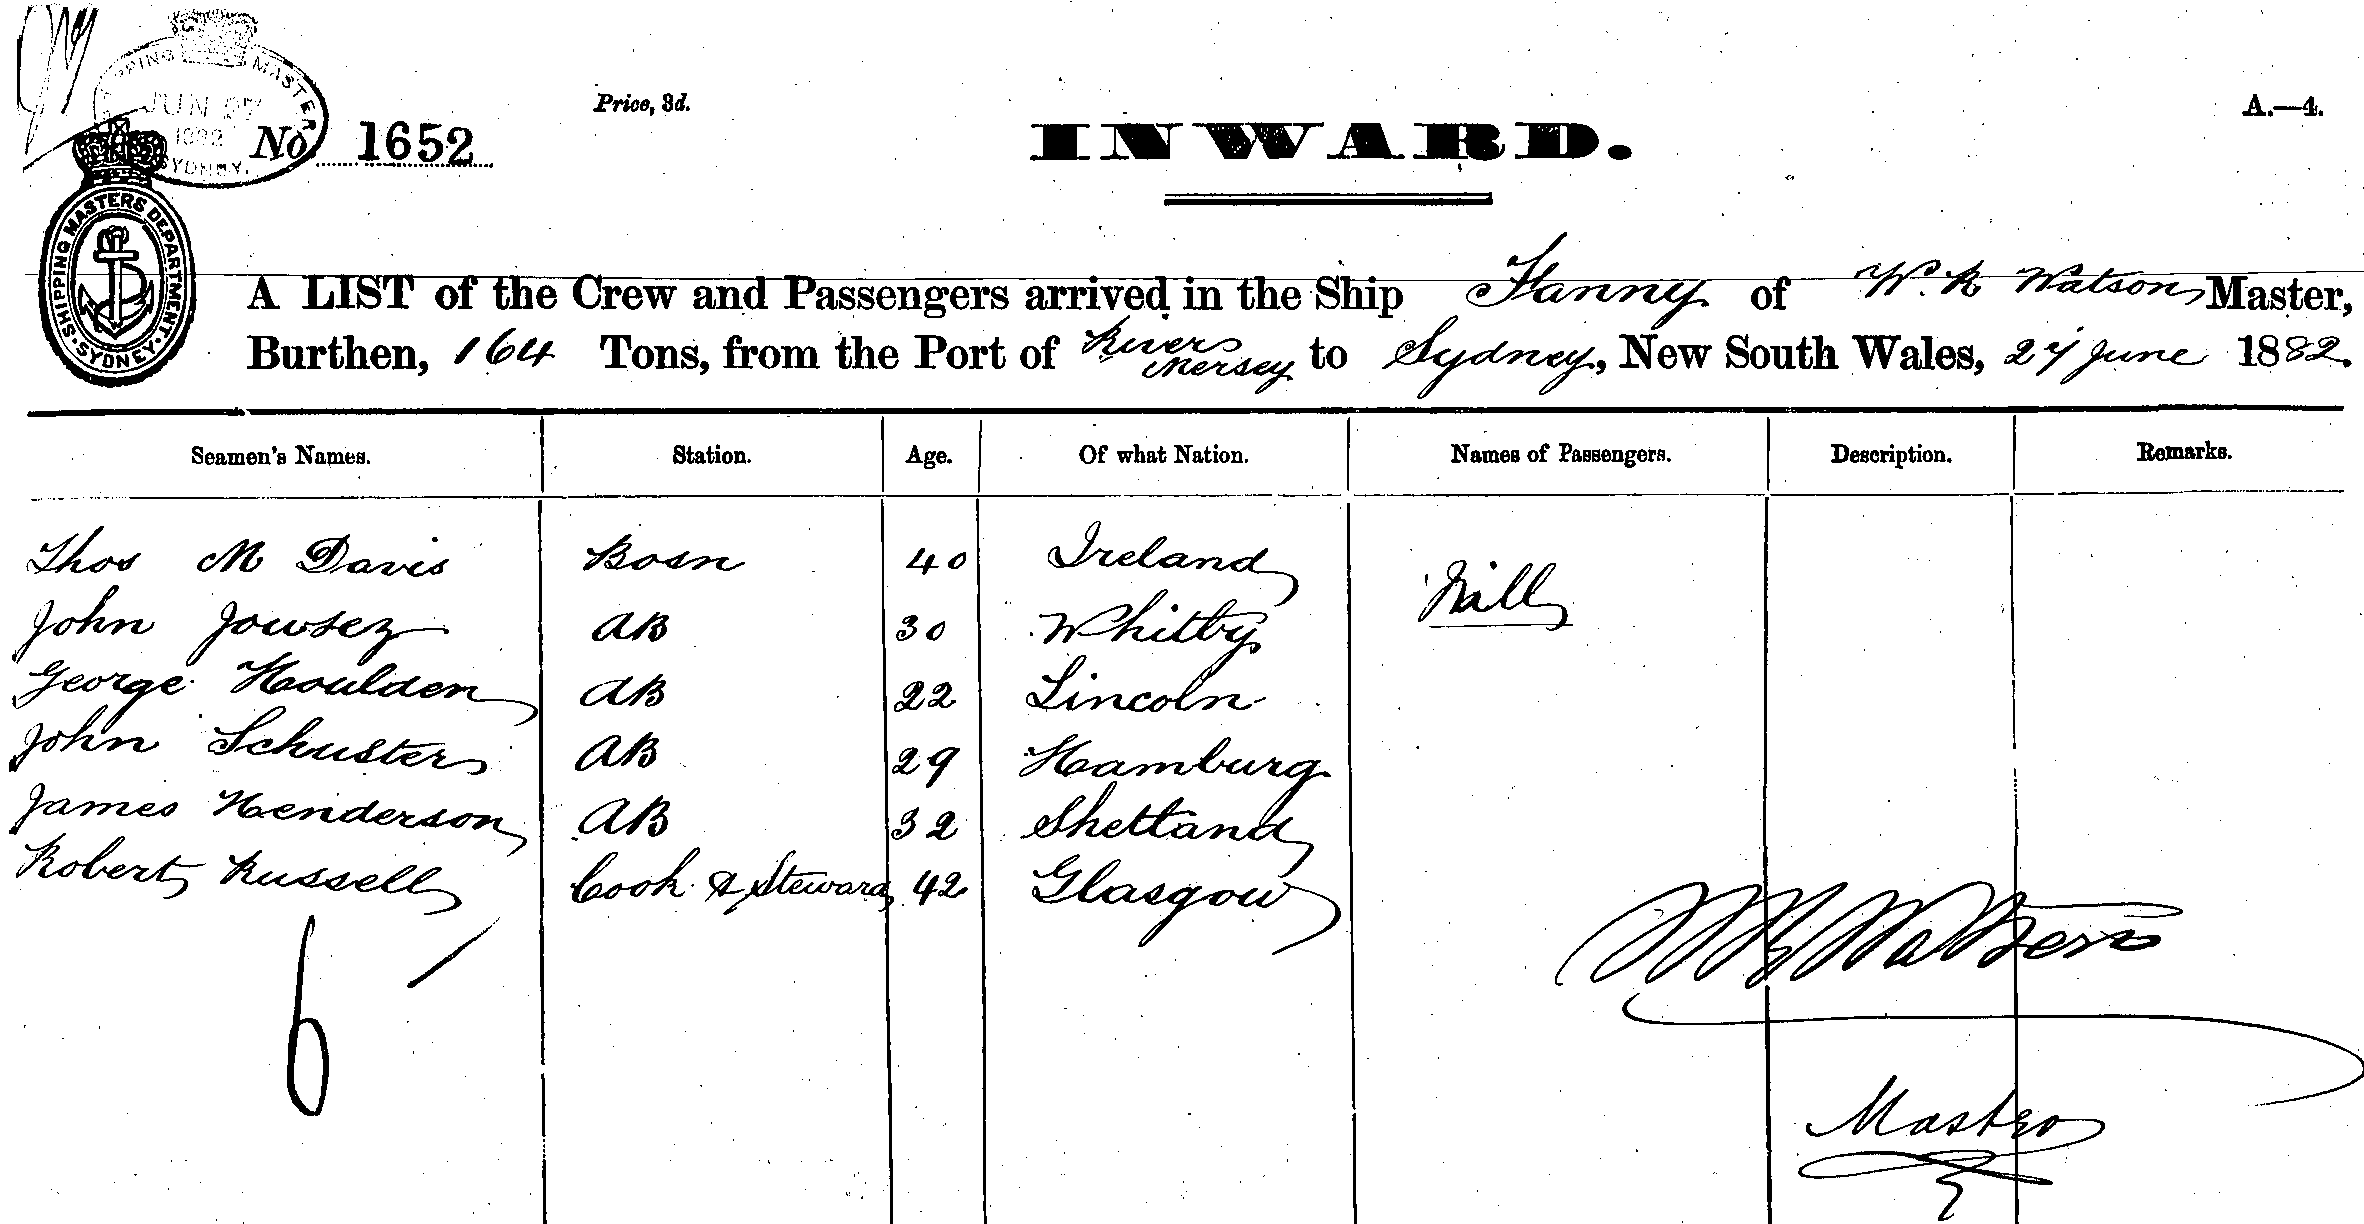 SHIPPING MASTER
JUN 27
1882
SYDNEY.
No. 1652
Price, 3d.
INWARD.
A.—4.
SHIPPING MASTERS DEPARTMENT
SYDNEY
A LIST of the Crew and Passengers arrived in the Ship Fanny of W. R Watson Master,
Burthen, 164 Tons, from the Port of River Mersey to Sydney, New South Wales, 27 June 1882.
Seamen's Names. Station. Age. Of what Nation. Names of Passengers. Description. Remarks.
Thos M Davis Bosn 40 Ireland Nill
John Jowsey AB 30 Whitby
George Houlden AB 22 Lincoln
John Schuster AB 29 Hamburg
James Henderson AB 32 Shetland
Robert Russell Cook & Steward 42 Glasgow
6
W R Watson
Master